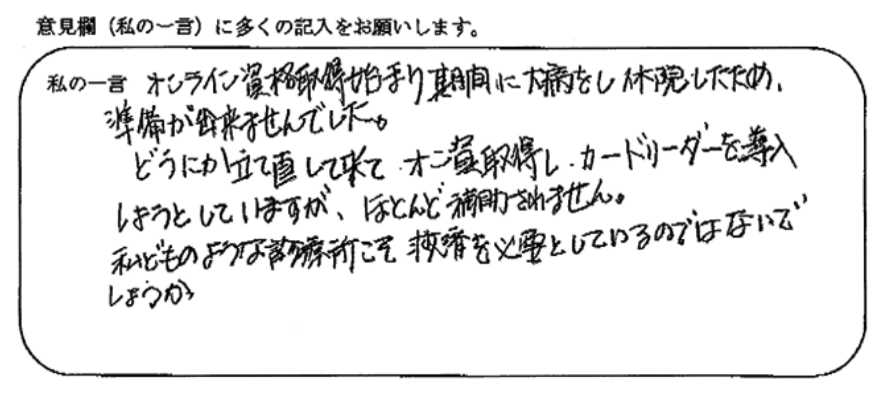 意見欄（私の一言）に多くの記入をお願いします。
私の一言 オンライン資格取得始まり期間に大病をし休院したため、
準備が出来ませんでした。
どうにか立て直して来て オン資取得し、カードリーダーを導入
しようとしていますが、ほとんど補助されません。
私どものような診療所こそ救済を必要としているのではないで
しょうか